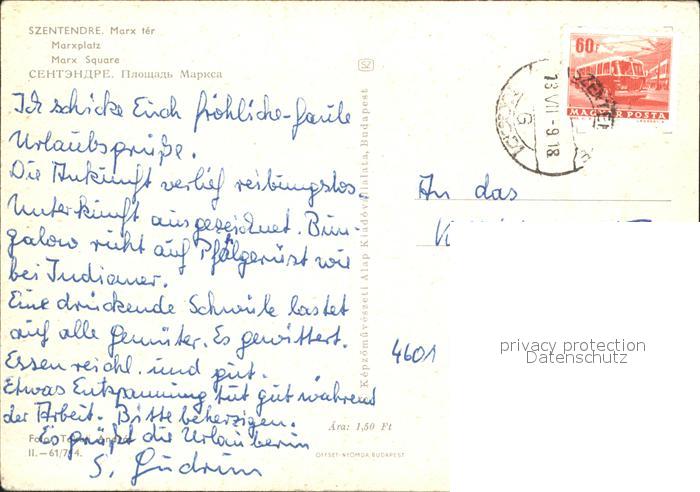 SZENTENDRE. Marx tér
Marxplatz
Marx Square
СЕНТЭНДРЕ. Площадь Маркса
Ich schicke Euch fröhliche-faule
Urlaubsgrüße.
Die Ankunft verlief reibungslos.
Unterkunft ausgezeichnet. Bun-
galow ruht auf Pfahlgerüst wie
bei Indianer.
Eine drückende Schwüle lastet
auf alle Gemüter. Es gewittert.
Essen reichl. und gut.
Etwas Entspannung tut gut während
der Arbeit. Bitte beherzigen.
Es grüßt die Urlauberin
S. Gudrun
Foto:
II.—61/
Képzőművészeti Alap Kiadóvállalata, Budapest
SZ
60f
MAGYAR POSTA
An das
4601
privacy protection
Datenschutz
Ára: 1,50 Ft
OFFSET-NYOMDA, BUDAPEST